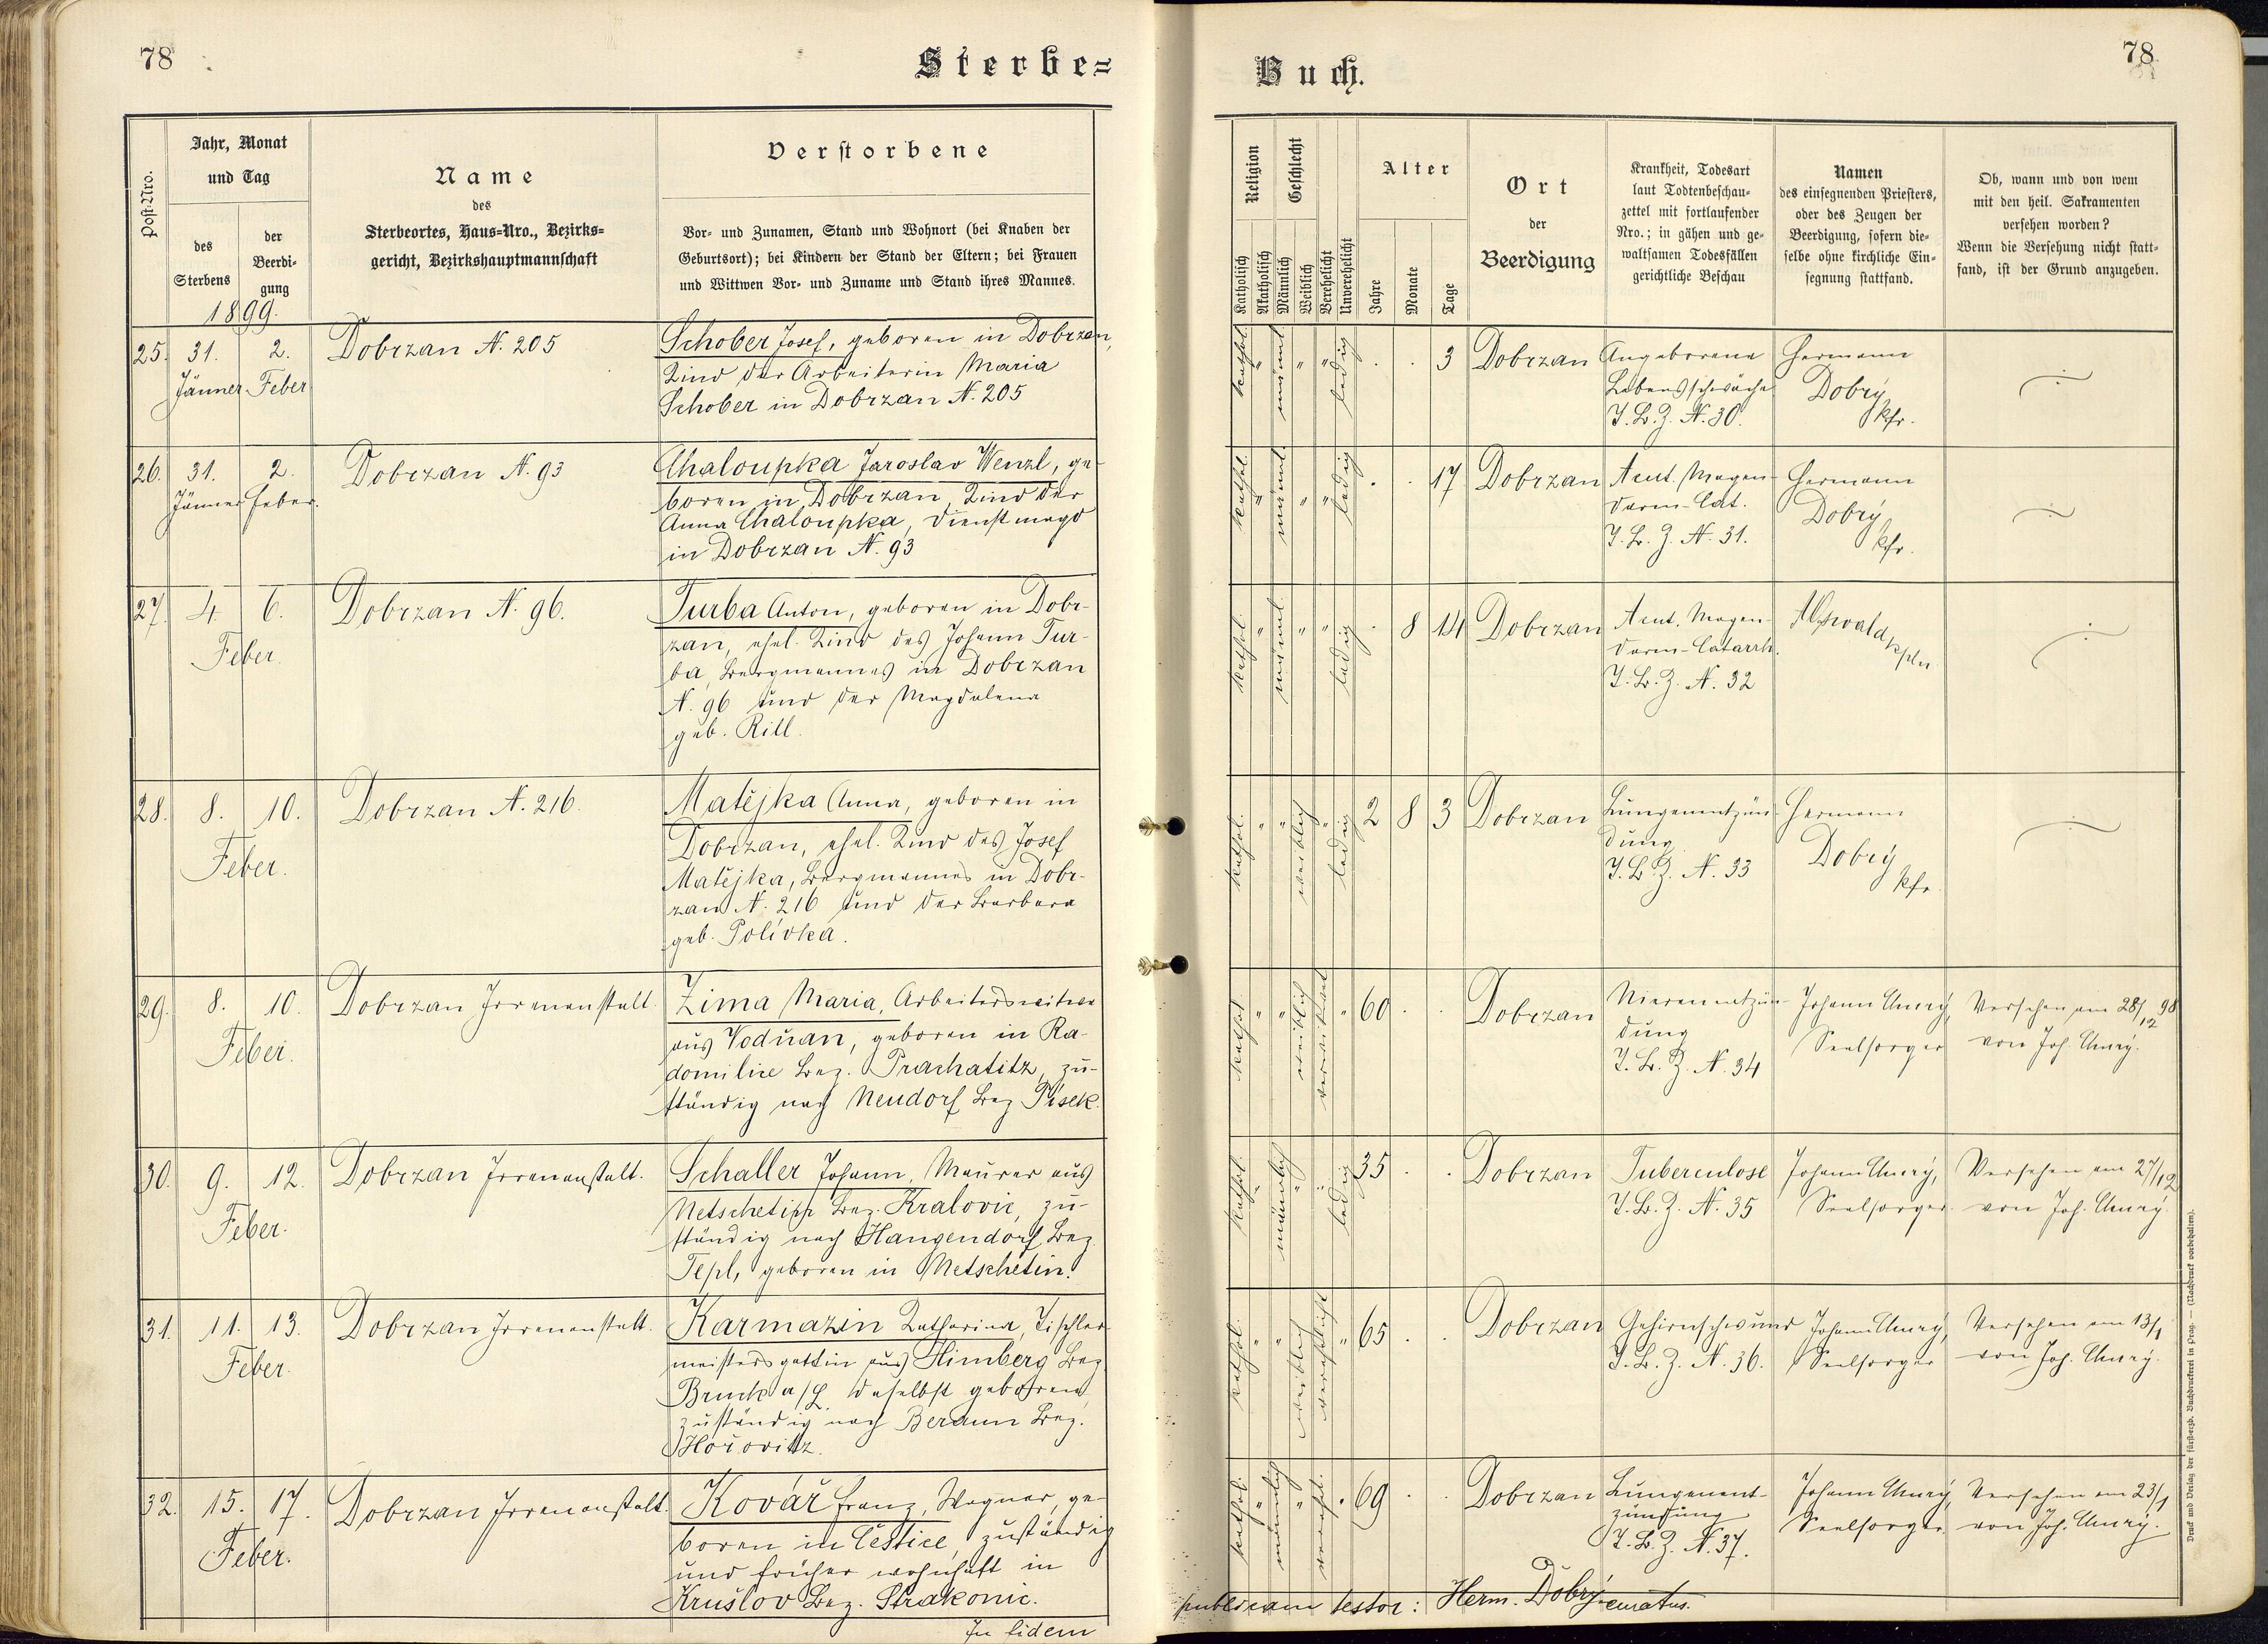 78
Sterbe=
Post-Nro.
Jahr, Monat
und Tag
des
Sterbens
der
Beerdi-
gung
1899.
Name
des
Sterbeortes, Haus-Nro., Bezirks-
gericht, Bezirkshauptmannschaft
Verstorbene
Vor- und Zunamen, Stand und Wohnort (bei Knaben der
Geburtsort); bei Kindern der Stand der Eltern; bei Frauen
und Wittwen Vor- und Zuname und Stand ihres Mannes.
25. 31. 2. Dobrzan N. 205
Jänner Feber
Schober Josef, geboren in Dobrzan,
Kind der Arbeiterin Maria
Schober in Dobrzan N. 205
26. 31. 2. Dobrzan N. 93
Jänner Feber.
Chaloupka Jaroslav Wenzl, ge-
boren in Dobrzan, Kind der
Anna Chaloupka, Dienstmagd
in Dobrzan N. 93
27. 4. 6. Dobrzan N. 96.
Feber.
Turba Anton, geboren in Dobr-
zan, ehel. Kind des Johann Tur-
ba, Bergmannes in Dobrzan
N. 96 und der Magdalena
geb. Rill.
28. 8. 10. Dobrzan N. 216.
Feber.
Matějka Anna, geboren in
Dobrzan, ehel. Kind des Josef
Matějka, Bergmannes in Dobr-
zan N. 216 und der Barbara
geb. Polívka.
29. 8. 10. Dobrzan Irrenanstalt.
Feber.
Zima Maria, Arbeiterswitwe
aus Vodňan, geboren in Ra-
domilice Bez. Prachatitz, zu-
ständig nach Neudorf Bez Písek.
30. 9. 12. Dobrzan Irrenanstalt.
Feber.
Schaller Johann, Maurer aus
Netschetin Bez. Kralovic, zu-
ständig nach Hangendorf Bez.
Tepl, geboren in Netschetin.
31. 11. 13. Dobrzan Irrenanstalt.
Feber.
Karmazin Katharina, Tischler-
meistersgattin aus Himberg Bez
Bruck a/L daselbst geboren,
zuständig nach Beraun Bez.
Hořovitz.
32. 15. 17. Dobrzan Irrenanstalt.
Feber.
Kovář Franz, Wagner, ge-
boren in Čestice, zuständig
und früher wohnhaft in
Krušlov Bez. Strakonic.
In fidem
Buch.
78
Religion
Katholisch
Akatholisch
Geschlecht
Männlich
Weiblich
Verehelicht
Unverehelicht
Alter
Jahre
Monate
Tage
Ort
der
Beerdigung
Krankheit, Todesart
laut Todtenbeschau-
zettel mit fortlaufender
Nro.; in gähen und ge-
waltsamen Todesfällen
gerichtliche Beschau
Namen
des einsegnenden Priesters,
oder des Zeugen der
Beerdigung, sofern die-
selbe ohne kirchliche Ein-
segnung stattfand.
Ob, wann und von wem
mit den heil. Sakramenten
versehen worden?
Wenn die Versehung nicht statt-
fand, ist der Grund anzugeben.
kathol. " männl. " " ledig . . 3 Dobrzan
Angeborene
Lebensschwäche
T.B.Z. N. 30.
Hermann
Dobrý
kfr.
kathol. " männl. " " ledig . . 17 Dobrzan
Acut. Magen-
darm-Cat.
T.B.Z. N. 31.
Hermann
Dobrý
kfr.
kathol. " männl. " " ledig . 8 14 Dobrzan
Acut. Magen-
darm-Catarrh.
T.B.Z. N. 32
kpln
kathol. " " weiblich " ledig 2 8 3 Dobrzan
Lungenentzün-
dung
T.B.Z. N. 33
Hermann
Dobrý
kfr.
kathol. " " weiblich verwitwet " 60 . . Dobrzan
Nierenentzün-
dung
T.B.Z. N. 34
Johann
Seelsorger
Versehen am 28/12 98
von Joh.
kathol. " männlich " " ledig 35 . . Dobrzan
Tuberculose
T.B.Z. N. 35
Johann
Seelsorger.
Versehen am 27/12
von Joh.
kathol. " " weiblich verehlicht " 65 . . Dobrzan
Gehirnschwund
T.B.Z. N. 36.
Johann
Seelsorger
Versehen am 13/1
von Joh.
kathol. " männlich " verehl. " 69 . . Dobrzan
Lungenent-
zündung
T.B.Z. N. 37.
Johann
Seelsorger
Versehen am 23/1
von Joh.
publicam testor: Herm. Dobrý curatus.
Druck und Verlag der fürsterzb. Buchdruckerei in Prag. — (Nachdruck vorbehalten).